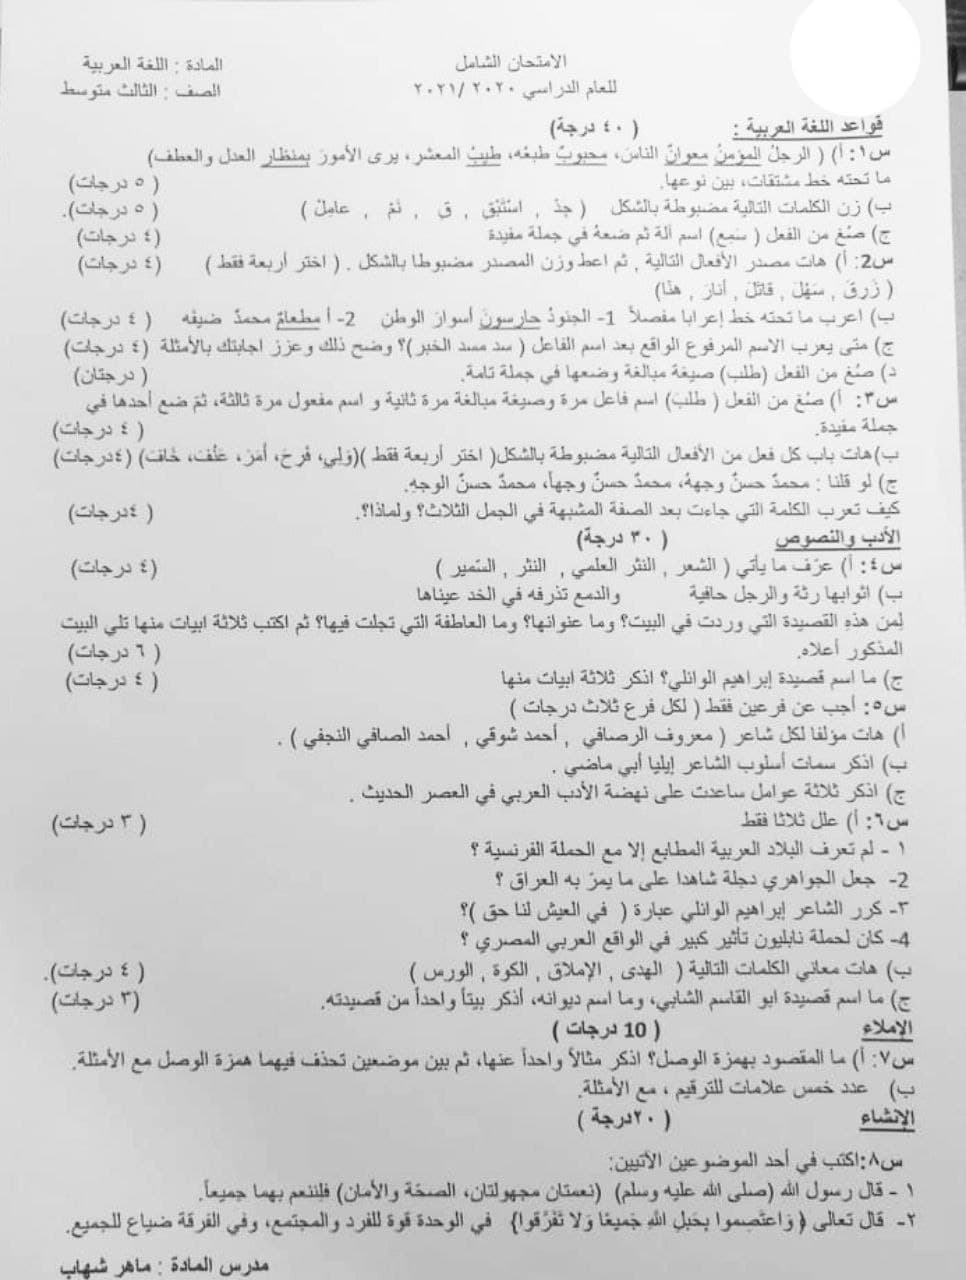 الامتحان الشامل
المادة : اللغة العربية
للعام الدراسي ٢٠٢٠ /٢٠٢١
الصف : الثالث متوسط
قواعد اللغة العربية : ( ٤٠ درجة)
س١: أ) ( الرجلُ المؤمنُ معوانٌ الناسَ، محبوبٌ طبعُه، طيبُ المعشر، يرى الأمورَ بمنظار العدل والعطف)
ما تحته خط مشتقات، بين نوعها. ( ٥ درجات)
ب) زن الكلمات التالية مضبوطة بالشكل ( جِدْ , اسْتَبْقِ , قِ , نَمْ , عامِلْ ) ( ٥ درجات).
ج) صُغ من الفعل ( سَمِع) اسم آلة ثم ضعهُ في جملة مفيدة ( ٤ درجات)
س2: أ) هات مصدر الأفعال التالية , ثم اعط وزن المصدر مضبوطا بالشكل . ( اختر أربعة فقط ) ( ٤ درجات)
( زَرِقَ , سَهُلَ , قاتَلَ , أنارَ , هنّا)
ب) اعرب ما تحته خط إعرابا مفصلاً 1- الجنودُ حارسونَ أسوارَ الوطن 2- أ مطعامٌ محمدٌ ضيفَه ( ٤ درجات)
ج) متى يعرب الاسم المرفوع الواقع بعد اسم الفاعل ( سد مسد الخبر)؟ وضح ذلك وعزز اجابتك بالأمثلة ( ٤ درجات)
د) صُغ من الفعل (طلب) صيغة مبالغة وضعها في جملة تامة. ( درجتان)
س٣: أ) صُغ من الفعل ( طلبَ) اسم فاعل مرة وصيغة مبالغة مرة ثانية و اسم مفعول مرة ثالثة، ثمّ ضع أحدها في
جملة مفيدة. ( ٤ درجات)
ب)هات باب كل فعل من الأفعال التالية مضبوطة بالشكل( اختر أربعة فقط )(وَلِي، فَرِحَ، أَمَرَ، عَنُفَ، خَافَ) (٤درجات)
ج) لو قلنا : محمدٌ حسنٌ وجههُ، محمدٌ حسنٌ وجهاً، محمدٌ حسنُ الوجهِ.
كيف تعرب الكلمة التي جاءت بعد الصفة المشبهة في الجمل الثلاث؟ ولماذا؟. ( ٤درجات)
الأدب والنصوص ( ٣٠ درجة)
س٤: أ) عرّف ما يأتي ( الشعر , النثر العلمي , النثر , السّمير ) ( ٤ درجات)
ب) اثوابها رثة والرجل حافية والدمع تذرفه في الخد عيناها
لِمن هذهِ القصيدة التي وردت في البيت؟ وما عنوانها؟ وما العاطفة التي تجلت فيها؟ ثم اكتب ثلاثة ابيات منها تلي البيت
المذكور أعلاه. ( ٦ درجات)
ج) ما اسم قصيدة إبراهيم الوائلي؟ اذكر ثلاثة ابيات منها ( ٤ درجات)
س٥: أجب عن فرعين فقط ( لكل فرع ثلاث درجات )
أ) هات مؤلفا لكل شاعر ( معروف الرصافي , أحمد شوقي , أحمد الصافي النجفي ) .
ب) اذكر سمات أسلوب الشاعر إيليا أبي ماضي .
ج) اذكر ثلاثة عوامل ساعدت على نهضة الأدب العربي في العصر الحديث .
س٦: أ) علل ثلاثا فقط ( ٣ درجات)
١ - لم تعرف البلاد العربية المطابع إلا مع الحملة الفرنسية ؟
2- جعل الجواهري دجلة شاهدا على ما يمرّ به العراق ؟
٣- كرر الشاعر إبراهيم الوائلي عبارة ( في العيش لنا حق )؟
4- كان لحملة نابليون تأثير كبير في الواقع العربي المصري ؟
ب) هات معاني الكلمات التالية ( الهدى , الإملاق , الكوة , الورس ) ( ٤ درجات).
ج) ما اسم قصيدة ابو القاسم الشابي، وما اسم ديوانه، أذكر بيتاً واحداً من قصيدته. (٣ درجات)
الإملاء ( 10 درجات )
س٧: أ) ما المقصود بهمزة الوصل؟ اذكر مثالاً واحداً عنها، ثم بين موضعين تحذف فيهما همزة الوصل مع الأمثلة.
ب) عدد خمس علامات للترقيم ، مع الأمثلة.
الإنشاء ( ٢٠درجة )
س٨:اكتب في أحد الموضوعين الآتيين:
١ - قال رسول الله (صلى الله عليه وسلم) (نعمتان مجهولتان، الصحّة والأمان) فلِننعم بهما جميعاً.
٢- قال تعالى ﴿ وَاعتَصِموا بِحَبلِ اللَّهِ جَميعًا وَلا تَفَرَّقوا﴾ في الوحدة قوة للفرد والمجتمع، وفي الفرقة ضياع للجميع.
مدرس المادة : ماهر شهاب